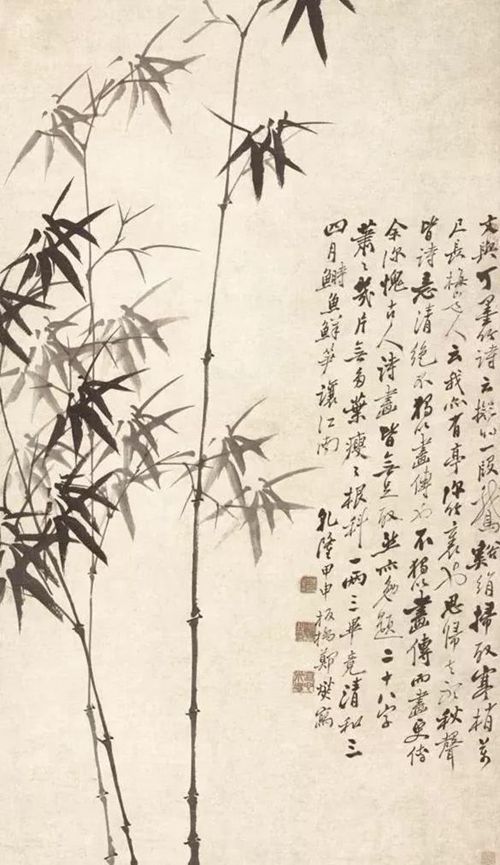 文與可墨竹詩云擬將一段鵝谿絹掃取寒梢萬
尺長梅道人云我亦有亭深竹裏也思歸去聽秋聲
皆詩意清絕不獨以畫傳也不獨以畫傳而畫更傳
余深愧古人詩畫皆無足取然亦勉題二十八字
蕭〻幾片無多葉瘦〻根科一兩三畢竟清和三
四月鰣魚鮮笋讓江南
乾隆甲申板橋鄭燮寫